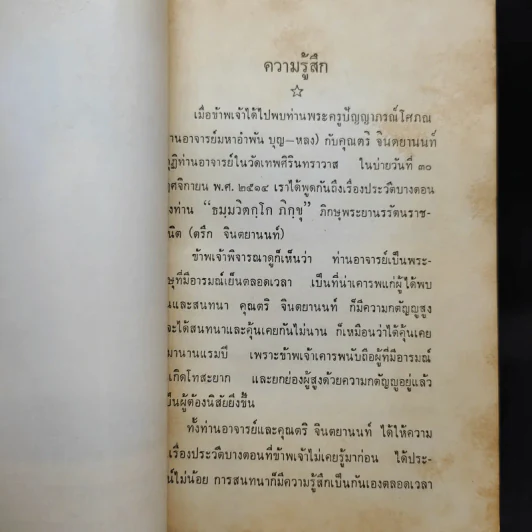 ความรู้สึก
☆
เมื่อข้าพเจ้าได้ไปพบท่านพระครูปัญญาภรณ์โศภณ
านอาจารย์มหาอำพัน บุญ–หลง) กับคุณตริ จินตยานนท์
ุฏิท่านอาจารย์ในวัดเทพศิรินทราวาส ในบ่ายวันที่ ๓๐
ฤศจิกายน พ.ศ. ๒๕๑๔ เราได้พูดกันถึงเรื่องประวัติบางตอน
งท่าน “ธมฺมวิตกฺโก ภิกฺขุ” ภิกษุพระยานรรัตนราช-
นิต (ตรึก จินตยานนท์)
ข้าพเจ้าพิจารณาดูก็เห็นว่า ท่านอาจารย์เป็นพระ-
ษุที่มีอารมณ์เย็นตลอดเวลา เป็นที่น่าเคารพแก่ผู้ได้พบ
นและสนทนา คุณตริ จินตยานนท์ ก็มีความกตัญญูสูง
จะได้สนทนาและคุ้นเคยกันไม่นาน ก็เหมือนว่าได้คุ้นเคย
มานานแรมปี เพราะข้าพเจ้าเคารพนับถือผู้ที่มีอารมณ์
เกิดโทสะยาก และยกย่องผู้สูงด้วยความกตัญญูอยู่แล้ว
ป็นผู้ต้องนิสัยยิ่งขึ้น
ทั้งท่านอาจารย์และคุณตริ จินตยานนท์ ได้ให้ความ
เรื่องประวัติบางตอนที่ข้าพเจ้าไม่เคยรู้มาก่อน ได้ประ-
น์ไม่น้อย การสนทนาก็มีความรู้สึกเป็นกันเองตลอดเวลา